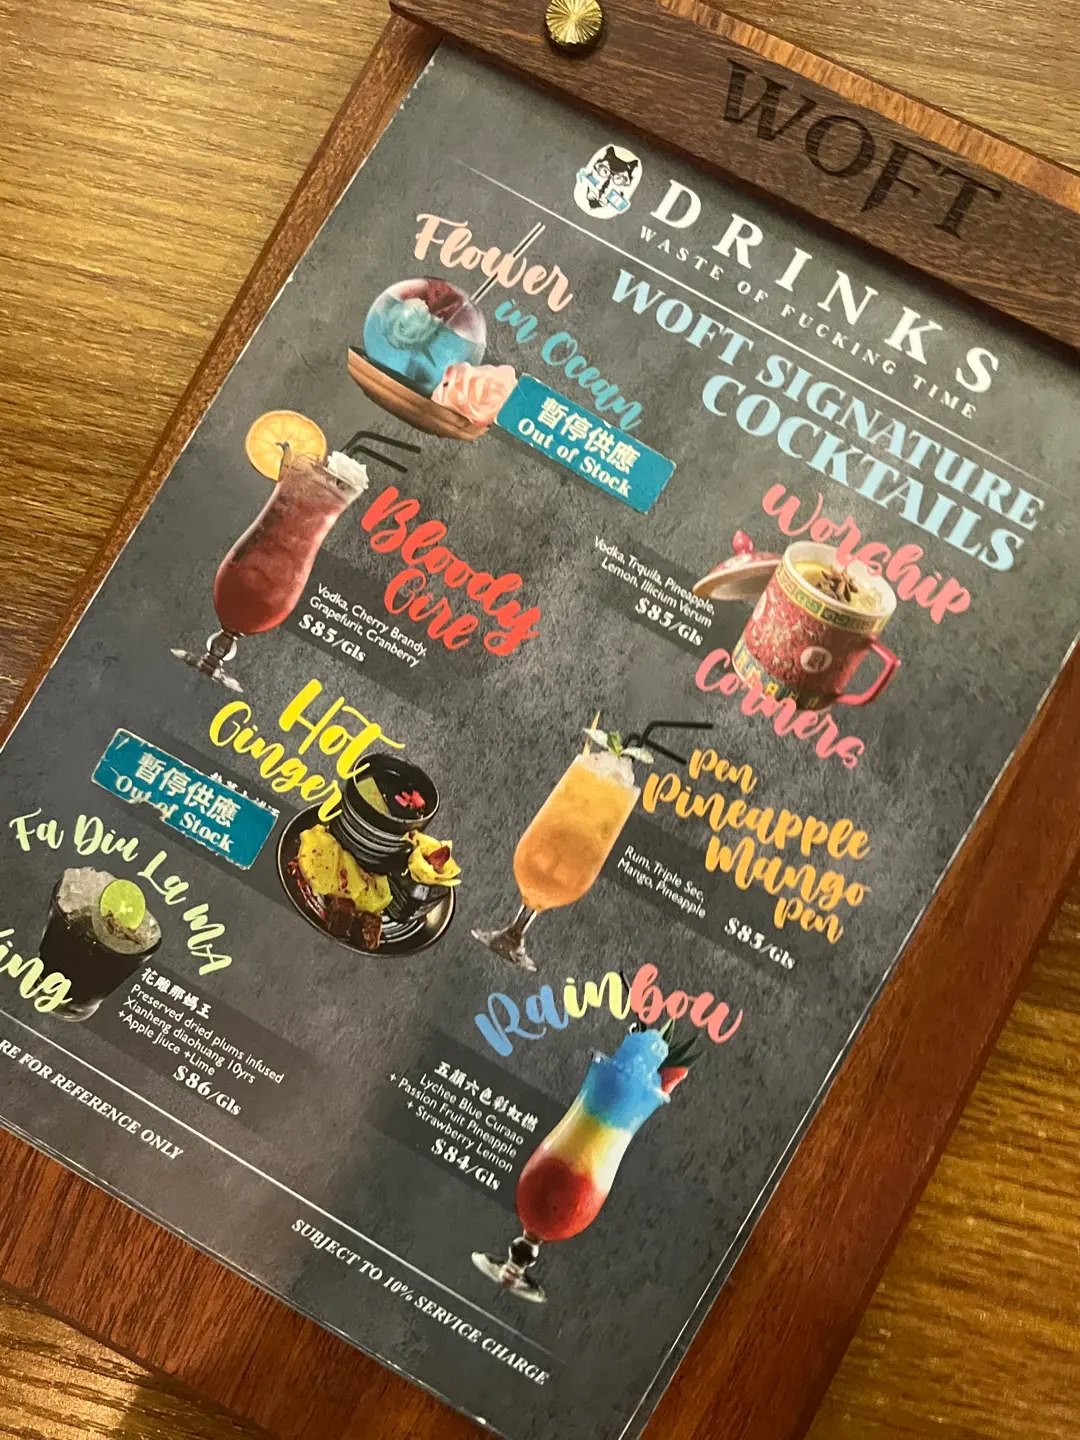 WOFT
DRINKS
WASTE OF FUCKING TIME
WOFT SIGNATURE
COCKTAILS
Flower
in Ocean
暫停供應
Out of Stock
Bloody
Cire
Vodka, Cherry Brandy,
Grapefurit, Cranberry
$85/Gls
Worship
Corners
Vodka, Trquila, Pineapple,
Lemon, Illicium Verum
$85/Gls
Hot
Ginger
暫停供應
Out of Stock
Pen
Pineapple
Mango
Pen
Rum, Triple Sec,
Mango, Pineapple
$85/Gls
Fa Diu La MA
King
花雕那媽王
Preserved dried plums infused
Xianheng diaohuang 10yrs
+Apple Jiuce +Lime
$86/Gls
Rainbow
五顏六色彩虹橪
Lychee Blue Curaao
+ Passion Fruit Pineapple
+ Strawberry Lemon
$84/Gls
RE FOR REFERENCE ONLY
SUBJECT TO 10% SERVICE CHARGE